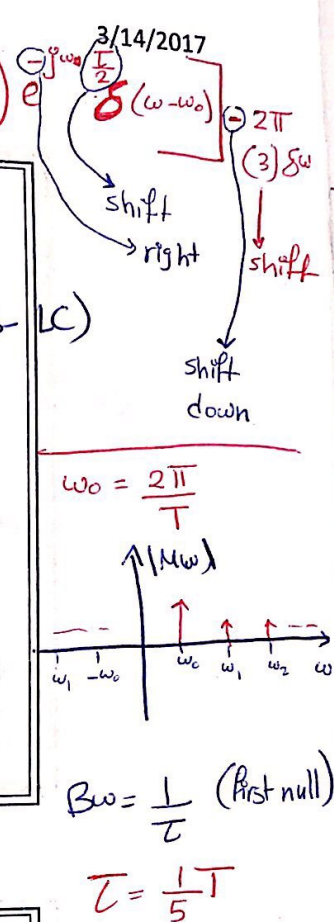 3/14/2017
e^-jω₀ τ/2 δ(ω-ω₀)] - 2π
(3) δω
shift
right
shift
LC)
shift
down
ω₀ = 2π/T
|Mω|
ω₁ -ω₀ ω₀ ω₁ ω₂ ω
Bω = 1/τ (first null)
τ = 1/5 T